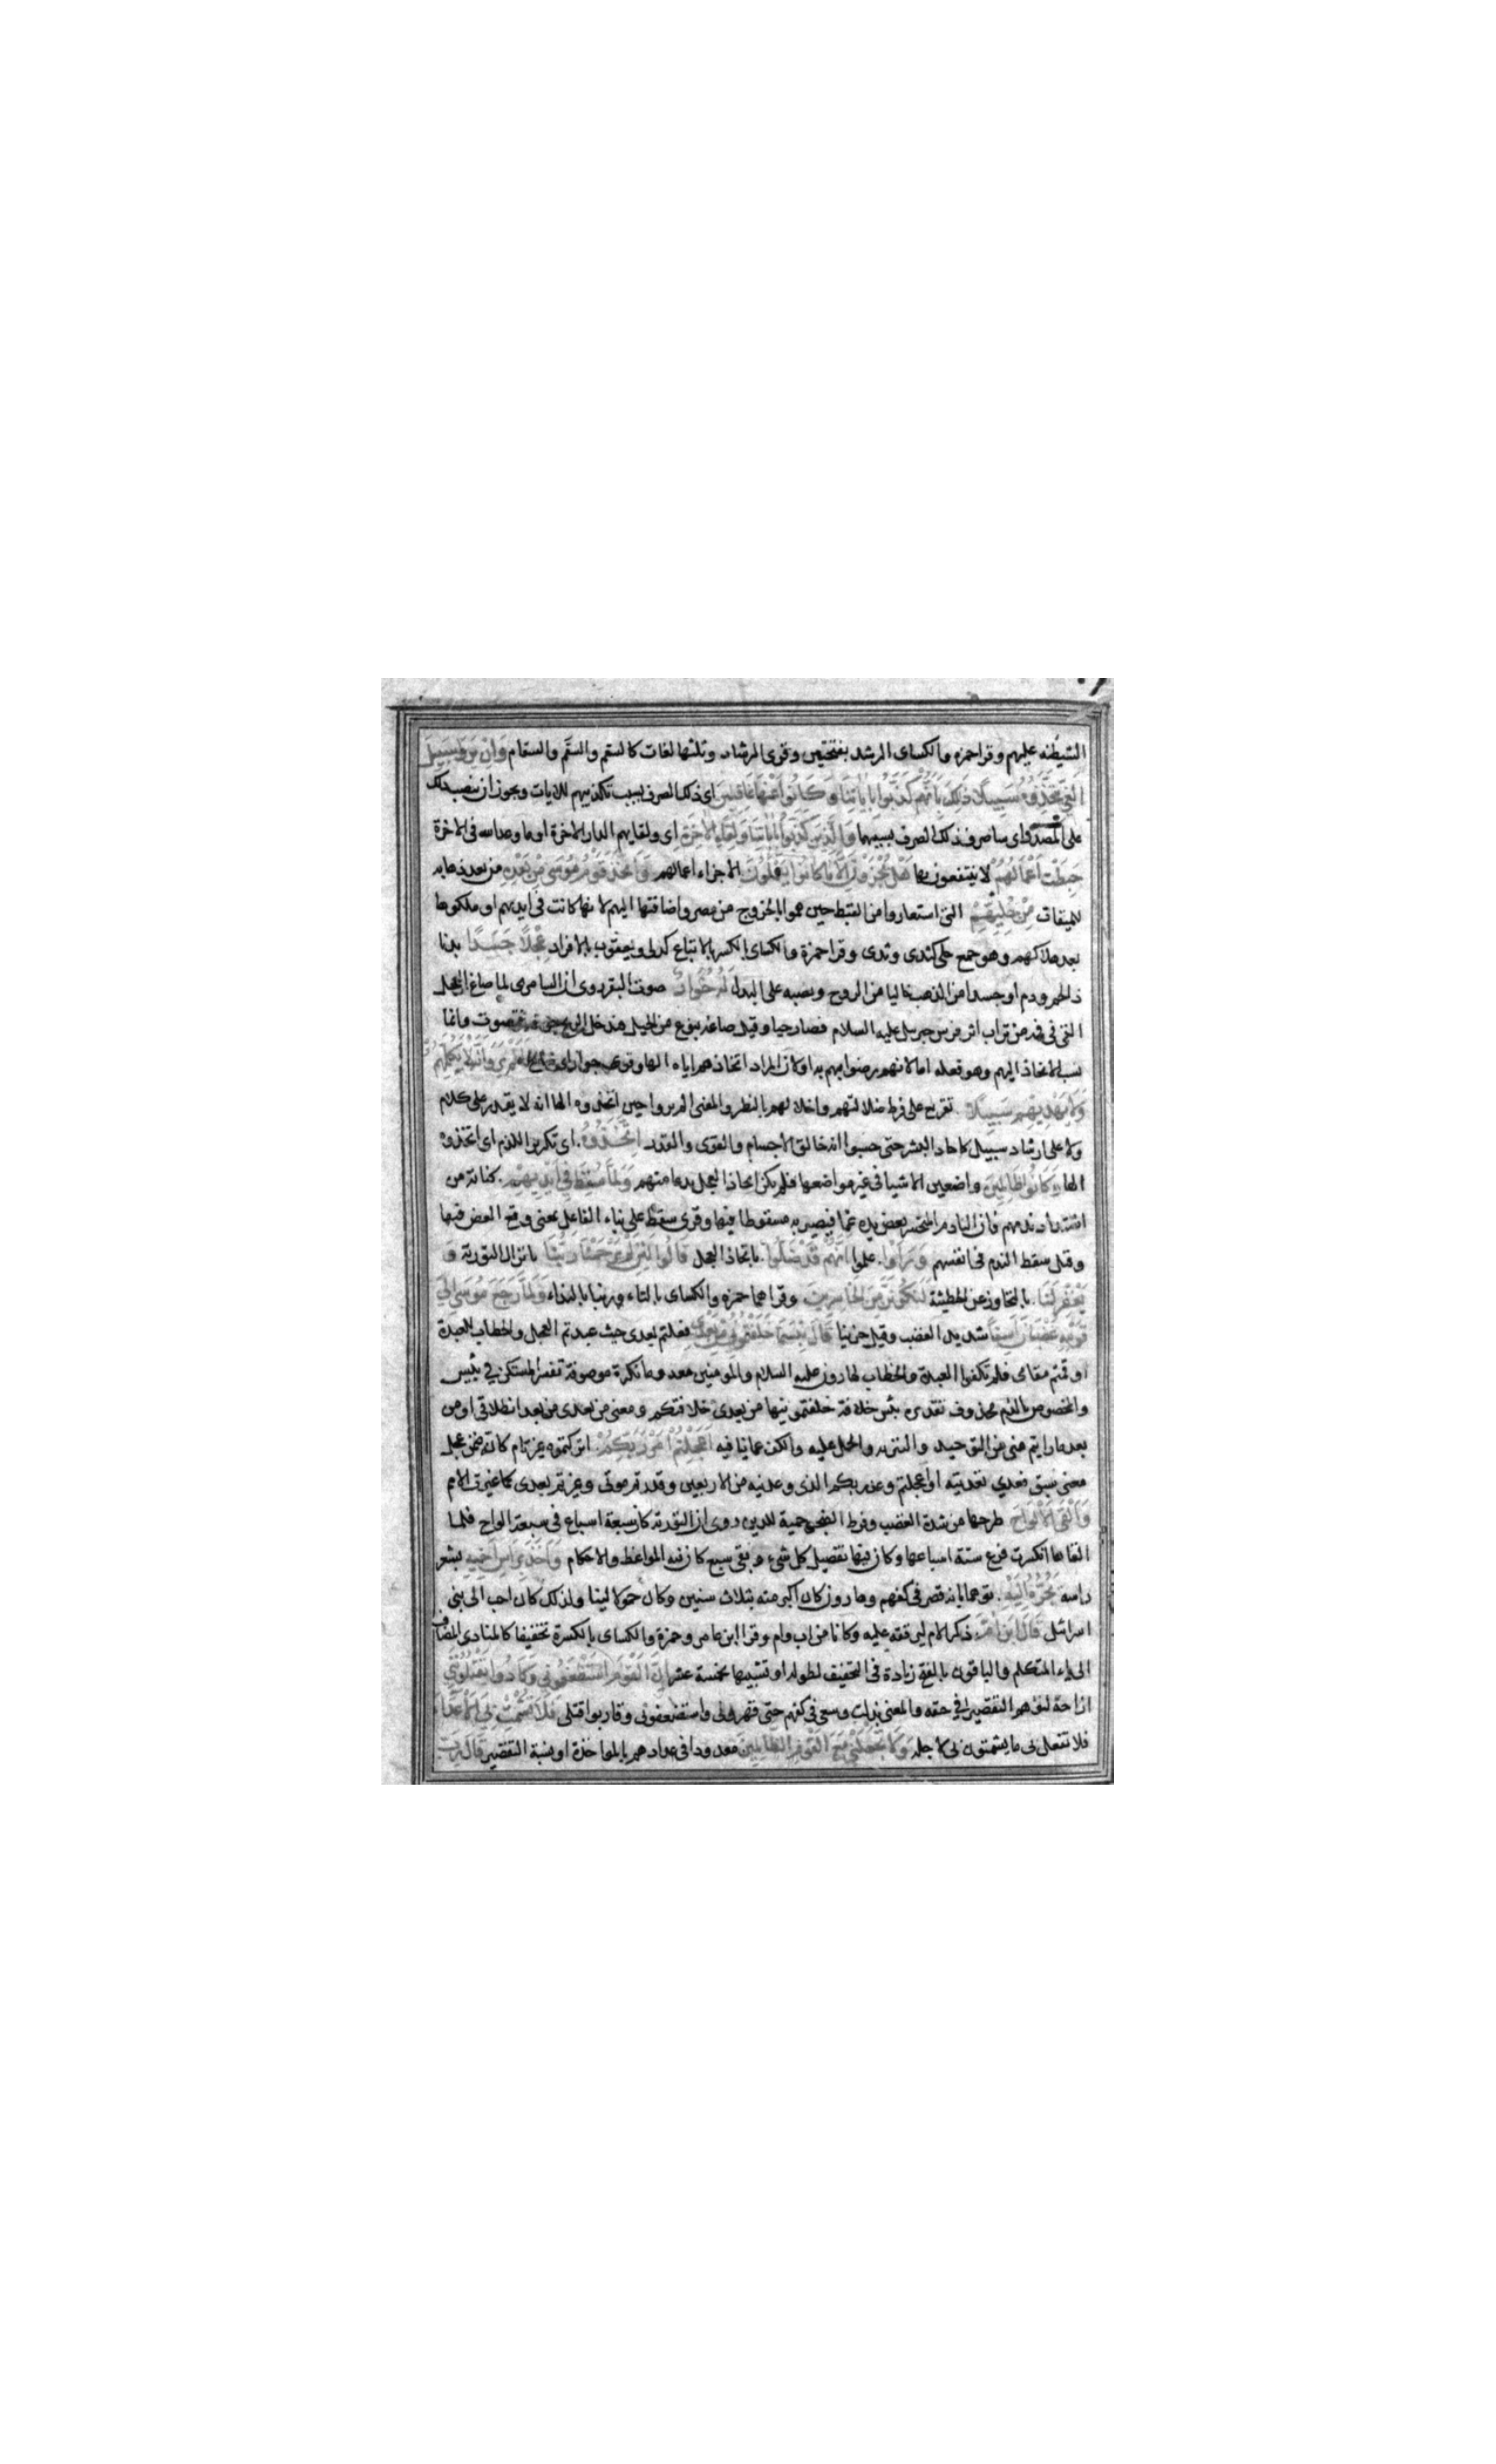 الشيطنه عليهم وقرا حمزه والكساى الرشد بفتحتين وقرى الرشاد وثلثها لغات كالسقم والسقم والسقام وَاِن يَرَوْا سَبِيلَ
اَلغَيِّ يَتَّخِذُوهُ سَبِيلًا ذَلِكَ بِاَنَّهُمْ كَذَّبُوا بِاٰيَاتِنَا وَكَانُوا عَنْهَا غَافِلِينَ اى ذلك الصرف بسبب تكذيبهم للايات ويجوز ان ينصب ذلك
على المصدر اى ساصرف ذلك الصرف بسببهما وَالَّذِينَ كَذَّبُوا بِاٰيَاتِنَا وَلِقَاءِ الاٰخِرَةِ اى ولقايهم الدار الاخرة او ما وعد الله فى الاخرة
حَبِطَتْ اَعْمَالُهُمْ لا ينتفعون بها هَلْ يُجْزَوْنَ اِلَّا مَا كَانُوا يَعْمَلُونَ الا جزاء اعمالهم وَاتَّخَذَ قَوْمُ مُوسَى مِنْ بَعْدِهِ من بعد ذهابه
للميقات مِنْ حُلِيِّهِمْ التى استعاروا من القبط حين هموا بالخروج من مصر واضافتها اليهم لانها كانت فى ايديهم او ملكوها
بعد هلاكهم وهو جمع حلى كثدى وثدى وقرا حمزة والكساى بالكسر بالاتباع كدلى ويعقوب بالافراد عِجْلًا جَسَدًا بدنا
ذا لحم ودم او جسدا من الذهب خاليا من الروح ونصبه على البدل لَهُ خُوَارٌ صوت البقر روى ان السامرى لما صاغ العجل
القى فى فمه من تراب اثر فرس جبريل عليه السلام فصار حيا وقيل صاغه بنوع من الحيل فدخل الريح جوفه فتصوت وانما
نسب الاتخاذ اليهم وهو فعله اما لانهم رضوا به او لان المراد اتخاذهم اياه الها وقرى جوار اى صياح اَلَمْ يَرَوْا اَنَّهُ لَا يُكَلِّمُهُمْ
وَلَا يَهْدِيهِمْ سَبِيلًا تقريع على فرط ضلالتهم واخلالهم بالنظر والمعنى الم يروا حين اتخذوه الها انه لا يقدر على كلام
ولا على ارشاد سبيل كاحاد البشر حتى حسبوا انه خالق الاجسام والقوى والقدر اِتَّخَذُوهُ اى تكرير للذم اى اتخذوه
الها وَكَانُوا ظَالِمِينَ واضعين الاشيا فى غير مواضعها فلم يكن اتخاذ العجل بدعا منهم وَلَمَّا سُقِطَ فِى اَيْدِيهِمْ كناية من
اشتداد ندمهم فان النادم المتحسر يعض يده غما فيصير يده مسقوطا فيها وقرى سقط على بناء الفاعل بمعنى وقع العض فيها
وقيل سقط الندم فى انفسهم وَرَاَوْا علموا اَنَّهُمْ قَدْ ضَلُّوا باتخاذ العجل قَالُوا لَئِنْ لَمْ يَرْحَمْنَا رَبُّنَا بانزال التورية وَ
يَغْفِرْ لَنَا بالتجاوز عن الخطيئة لَنَكُونَنَّ مِنَ الْخَاسِرِينَ وقراهما حمزه والكساى بالتاء وربنا بالنداء وَلَمَّا رَجَعَ مُوسَى اِلَى
قَوْمِهِ غَضْبَانَ اَسِفًا شديد الغضب وقيل حزينا قَالَ بِئْسَمَا خَلَفْتُمُونِى مِنْ بَعْدِى فعلتم بعدى حيث عبدتم العجل والخطاب للعبدة
او قمتم مقامى فلم تكفوا العبدة والخطاب لهارون عليه السلام والمومنين معه وما نكرة موصوفة تفسر المستكن فى بئس
والمخصوص بالذم محذوف تقديره بئس خلافة خلفتمونيها من بعدى خلافتكم ومعنى من بعدى من بعد انطلاقى او من
بعد ما رايتم منى من التوحيد والتنزيه والحمل عليه والكف عما ينافيه اَعَجِلْتُمْ اَمْرَ رَبِّكُمْ اتركتموه غير تام كانه ضمن عجل
معنى سبق فعدى تعديته او اعجلتم وعد ربكم الذى وعدنيه من الاربعين وقدرتم موتى وغيرتم بعدى كما غيرت الامم
وَاَلْقَى الْاَلْوَاحَ طرحها من شدة الغضب وفرط الضجر حمية للدين روى ان التورية كان سبعة اسباع فى سبعة الواح فلما
القاها انكسرت فرفع ستة اسباعها وكان فيها تفصيل كل شىء وبقى سبع كان فيه المواعظ والاحكام وَاَخَذَ بِرَاْسِ اَخِيهِ بشعر
راسه يَجُرُّهُ اِلَيْهِ توهما بانه قصر فى كفهم وهارون كان اكبر منه بثلاث سنين وكان حمولا لينا ولذلك كان احب الى بنى
اسرائيل قَالَ ابْنَ اُمَّ ذكر الام ليرققه عليه وكانا من اب وام وقرا ابن عامر وحمزة والكساى بالكسرة تخفيفا كالمنادى المضاف
الى ياء المتكلم والباقون بالفتح زيادة فى التخفيف لطوله او تشبيها بخمسة عشر اِنَّ الْقَوْمَ اسْتَضْعَفُونِى وَكَادُوا يَقْتُلُونَنِى
ازاحة لتوهم التقصير فى حقه والمعنى بذلت وسعى فى كفهم حتى قهرونى واستضعفونى وقاربوا قتلى فَلَا تُشْمِتْ بِىَ الْاَعْدَاءَ
فلا تفعل بى ما يشمتون بى لاجله وَلَا تَجْعَلْنِى مَعَ الْقَوْمِ الظَّالِمِينَ معدودا فى عدادهم بالمواخذة او نسبة التقصير قَالَ رَبِّ